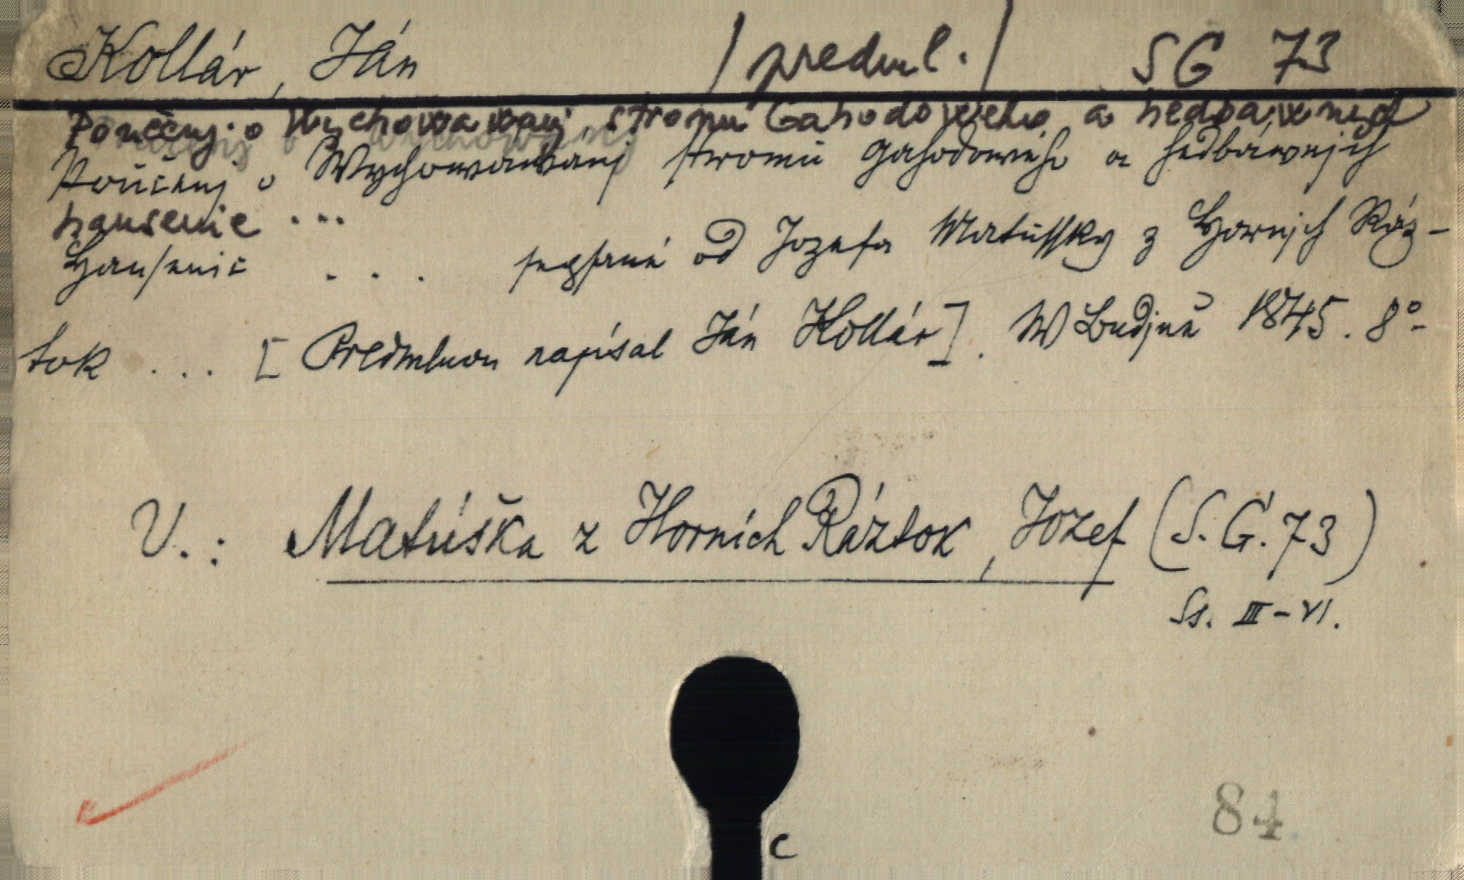 Kollár, Ján /predml./ SG 73
Poučenj o Wychowawanj stromu Gahodoweho a hedbawnych
Poučenj o Wychowawanj stromu Gahodoweho a hedbáwnjch
hausenic ...
Hausenic . . . sepsané od Jozefa Matussky z Hornjch Ráz-
tok ... [Predmluvu napísal Ján Kollár]. W Budjně 1845. 8°-
V.: Matúška z Horních Ráztok, Jozef (S.G.73)
Ss. III-VI.
c
84